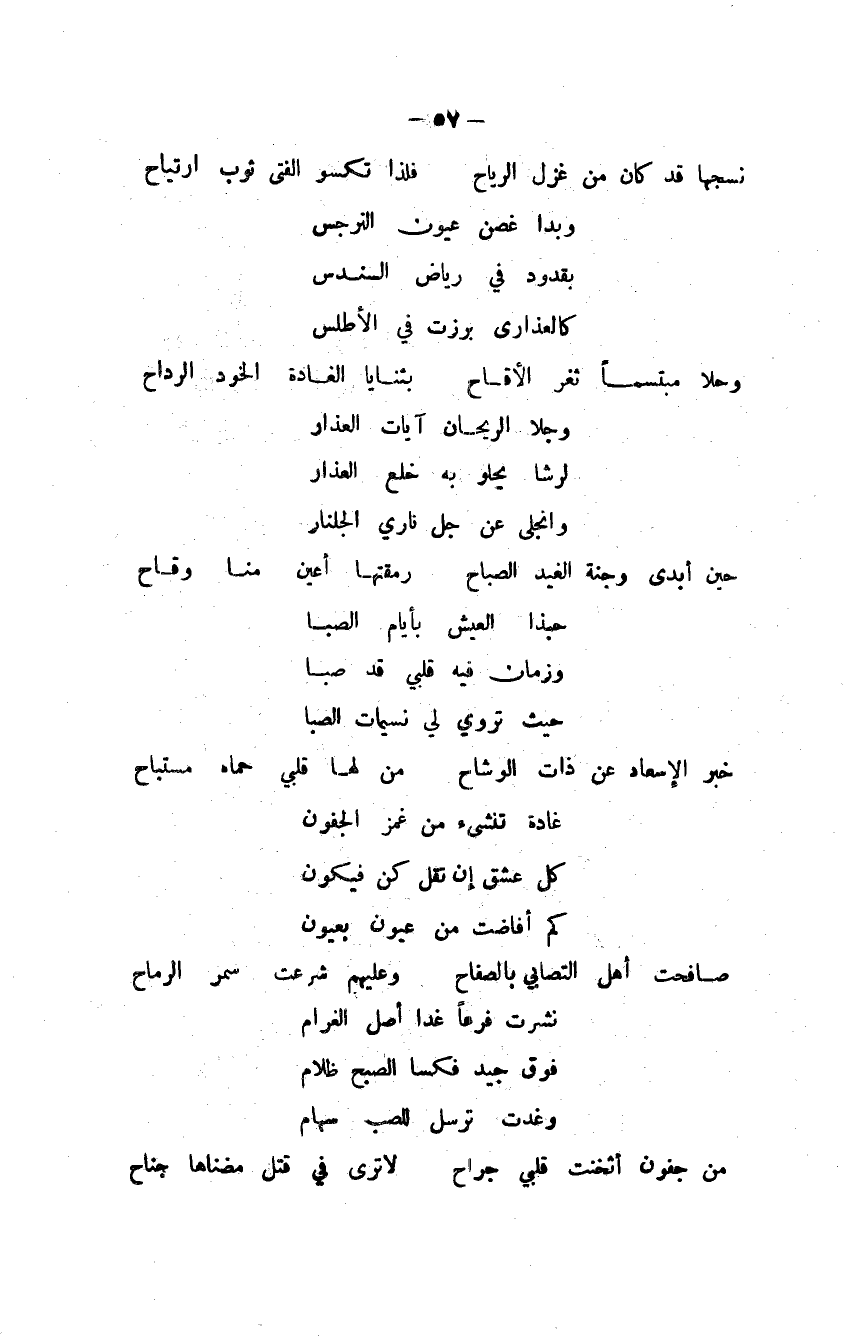 — ٥٧ —
نسجها قد كان من غزل الرياح فلذا تكسو الفتى ثوب ارتياح
وبدا غصن عيون النرجس
بقدود في رياض السندس
كالعذارى برزت في الأطلس
وحلا مبتسماً ثغر الأقاح بثنايا الغادة الخود الرداح
وجلا الريحان آيات العذار
لرشا يحلو به خلع العذار
وانجلى عن جل ناري الجلنار
حين أبدى وجنة الغيد الصباح رمقتها أعين منا وقاح
حبذا العيش بأيام الصبا
وزمان فيه قلبي قد صبا
حيث تروي لي نسيمات الصبا
خبر الإسعاد عن ذات الوشاح من لها قلبي حماه مستباح
غادة تنشىء من غمز الجفون
كل عشق إن تقل كن فيكون
كم أفاضت من عيون بعيون
صافحت أهل التصابي بالصفاح وعليهم شرعت سمر الرماح
نشرت فرعاً غدا أصل الغرام
فوق جيد فكسا الصبح ظلام
وغدت ترسل للصب سهام
من جفون أثخنت قلبي جراح لاترى في قتل مضناها جناح